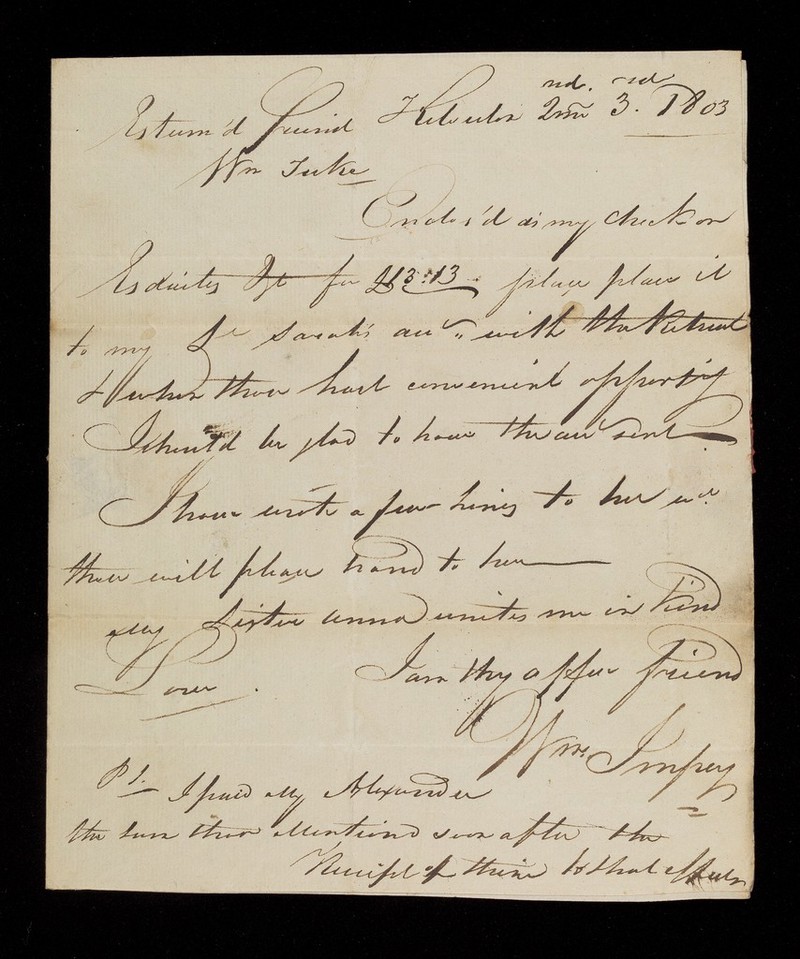 Esteem'd friend Kelvedon 2nd. mo 3rd. 1803
Wm Tuke
Enclos'd is my check on
Esdailes & Co for £13:13 please place it
to my Sr Sarah's acct. with the Retreat
& when thou hast convenient opporty
I should be glad to have the acct sent
I have wrote a few lines to her wch
thou will please hand to her
My Sister Anna unites me in kind
Love. I am thy affec friend
Wm. Impey
PS. I paid Alexander
the sum thou Mentiond soon after the
Receipt of thine to that